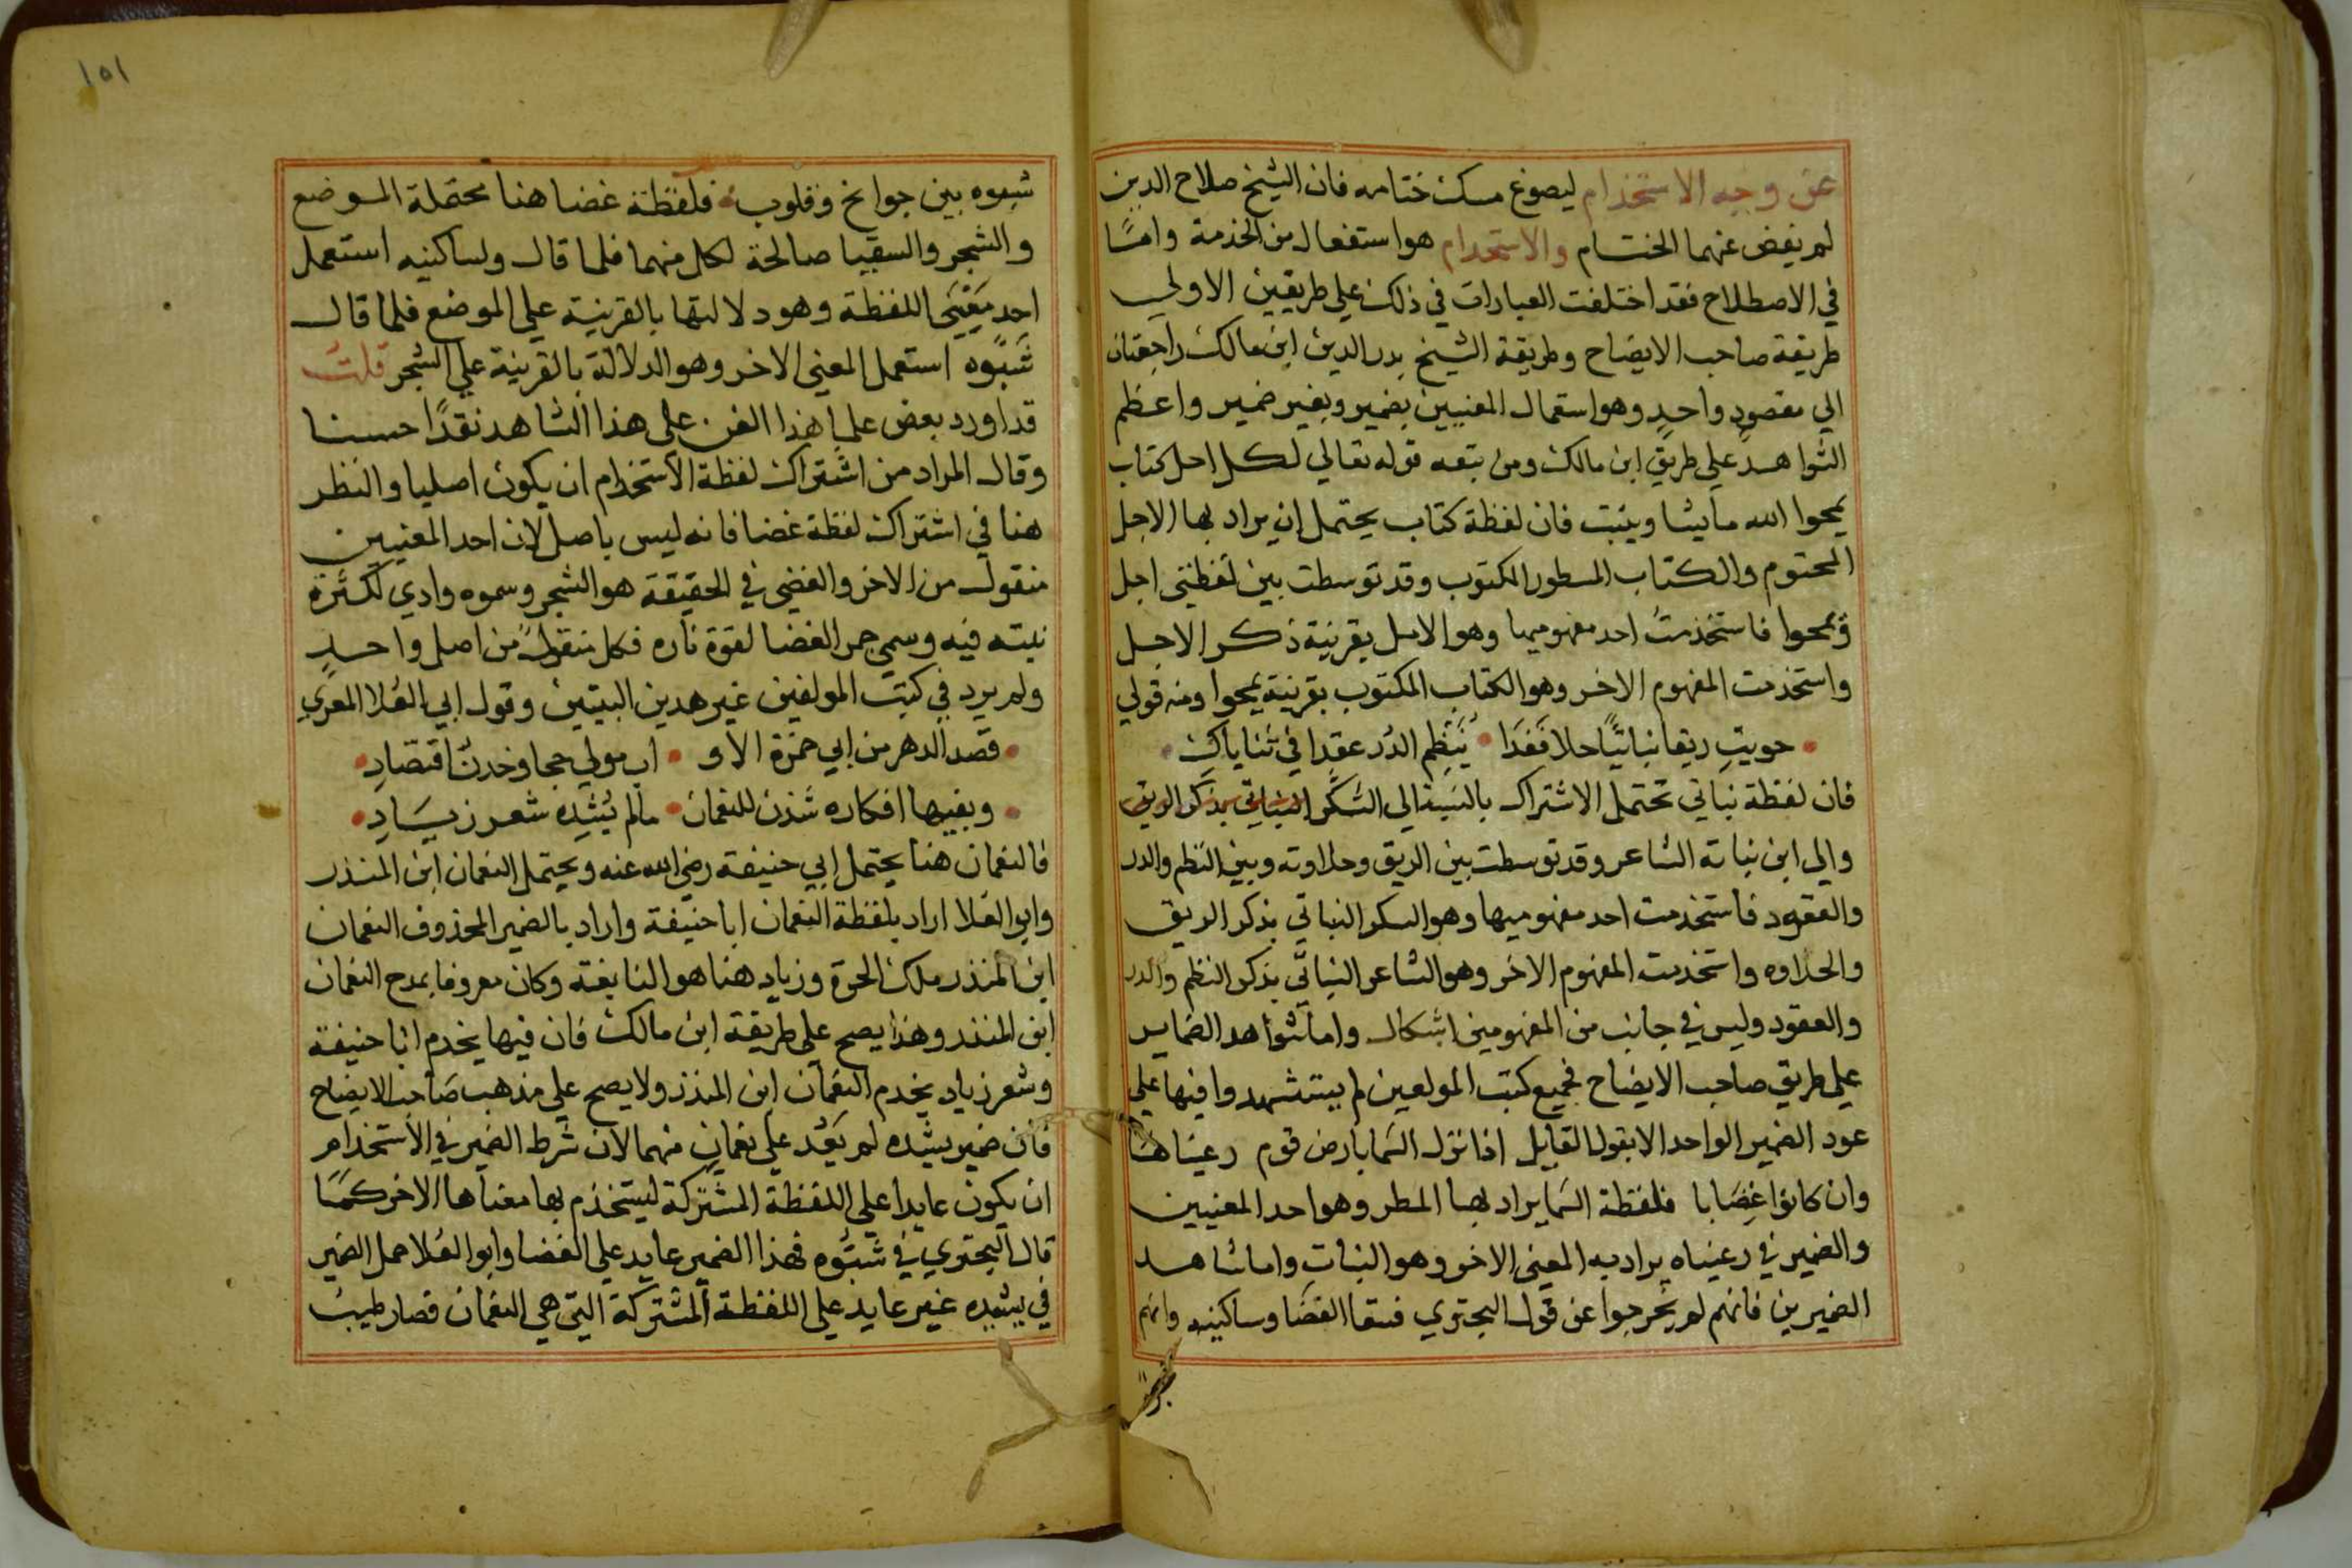 عن وجه الاستخذام ليصوغ مسك ختامه فان الشيخ صلاح الدين
لم يفض عنهما الختام والاستخدام هو استفعال من الخذمة وامّا
في الاصطلاح فقد اختلفت العبارات في ذلك علي طريقين الاولي
طريقة صاحب الايضاح وطريقة الشيخ بدر الدين ابن مالك راجعتان
الي مقصود واحد وهو استعمال المعنيين بضمير وبغير ضمير واعظم
الشواهد علي طريق ابن مالك ومن تبعه قوله تعالي لكل اجل كتاب
يمحوا الله ما يشا ويثبت فان لفظة كتاب يحتمل ان يراد بها الاجل
المحتوم والكتاب المسطور المكتوب وقد توسطت بين لفظتي اجل
ويمحوا فاستخذمتُ احد مفهوميها وهو الامل بقرنية ذكر الاجل
واستخذمت المفهوم الاخر وهو الكتاب المكتوب بقرنية يمحوا ومنه قولي
حويتِ ريقا نباتيًّا حلا فَغَدَا يُنَظِم الدُر عقدا في ثناياكِ
فان لفظة نباتي تحتمل الاشتراك بالنسبة الي السكر النباتي بذكر الريق
والي ابن نباته الشاعر وقد توسطت بين الريق وحلاوته وبين النظم والدر
والعقود فاستخذمت احد مفهوميها وهو السكر النباتي بذكر الريق
والحلاوه واستخذمت المفهوم الاخر وهو الشاعر النباتي بذكر النظم والدر
والعقود وليس في جانب من المفهومين اشكال واما شواهد الضماير
علي طريق صاحب الايضاح فجميع كتب المولعين لم يستشهدوا فيها علي
عود الضمير الواحد الا بقول القايل اذا نزل السَما بارض قوم رعيناها
وان كانوا غِضَابا فلفظة السَما يراد بها المطر وهو احد المعنيين
والضمير في رعيناه يراد به المعني الاخر وهو النبات واما شاهد
الضميرين فانهم لم يخرجوا عن قول البحتري فسقا الغضَا وساكنيه وانهم
١٥١
شبوه بين جوانح وقلوب فلفظة غضا هنا محتملة الموضع
والشجر والسقيا صالحة لكل منهما فلما قال ولساكنيه استعمل
احد مَعْنَيَى اللفظة وهو دلالتها بالقرنية علي الموضع فلما قال
شَبّوه استعمل المعني الاخر وهو الدلالة بالقرنية علي الشجر قلت
قد اورد بعض علما هذا الفن علي هذا الشاهد نقدًا حسنا
وقال المراد من اشتراك لفظة الاستخذام ان يكون اصليا والنظر
هنا في اشتراك لفظة غضا فانه ليس باصل لان احد المعنيين
منقول من الاخر والغضي في الحقيقة هو الشجر وسموه وادي لكثرة
نبته فيه وسمي جمر الغضا لقوة ناره فكل منقول من اصل واحد
ولم يرد في كتب المولفين غير هدين البيتين وقول ابي العُلا المعري
قصد الدهر من ابي حمزة الاو اب مولي حجا وخدن اقتصادِ
وبفيها افكاره شذن للنعمان مالم يُشِده شعر زيَادِ
فالنعمان هنا يحتمل ابي حنيفة رضي الله عنه ويحتمل النعمان ابن المنذر
وابو العُلا اراد بلفظة النعمان ابا حنيفة واراد بالضمير المحذوف النعمان
ابن المنذر ملك الحرة وزياد هنا هو النابغة وكان معروفا بمدح النعمان
ابن المنذر وهذا يصح علي طريقة ابن مالك فان فيها يخدم ابا حنيفة
وشعر زياد يخدم النعمان ابن المنذر ولا يصح علي مذهب صَاحب الايضاح
فان ضمير يشده لم يَعُد علي نعمانٍ منهما لان شرط الضمير في الاستخذام
ان يكون عايدا علي اللفظة المشتركة ليستخذم بها معناها الاخر كمَا
قال البحتري في شَبّوه فهذا الضمير عايد علي الغضا وابو العُلا جمل الضمير
في يشيده غير عايد علي اللفظة المشتركة التي هي النعمان فصار طيب